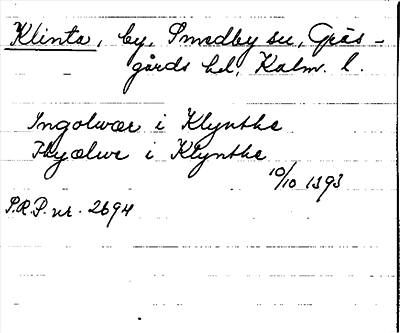 Klinta, by, Smedby sn, Gräs-
gårds hd, Kalm. l.
Ingolwær i Klynthe
Thyælwe i Klynthe
10/10 1393
S.R.P. nr. 2694